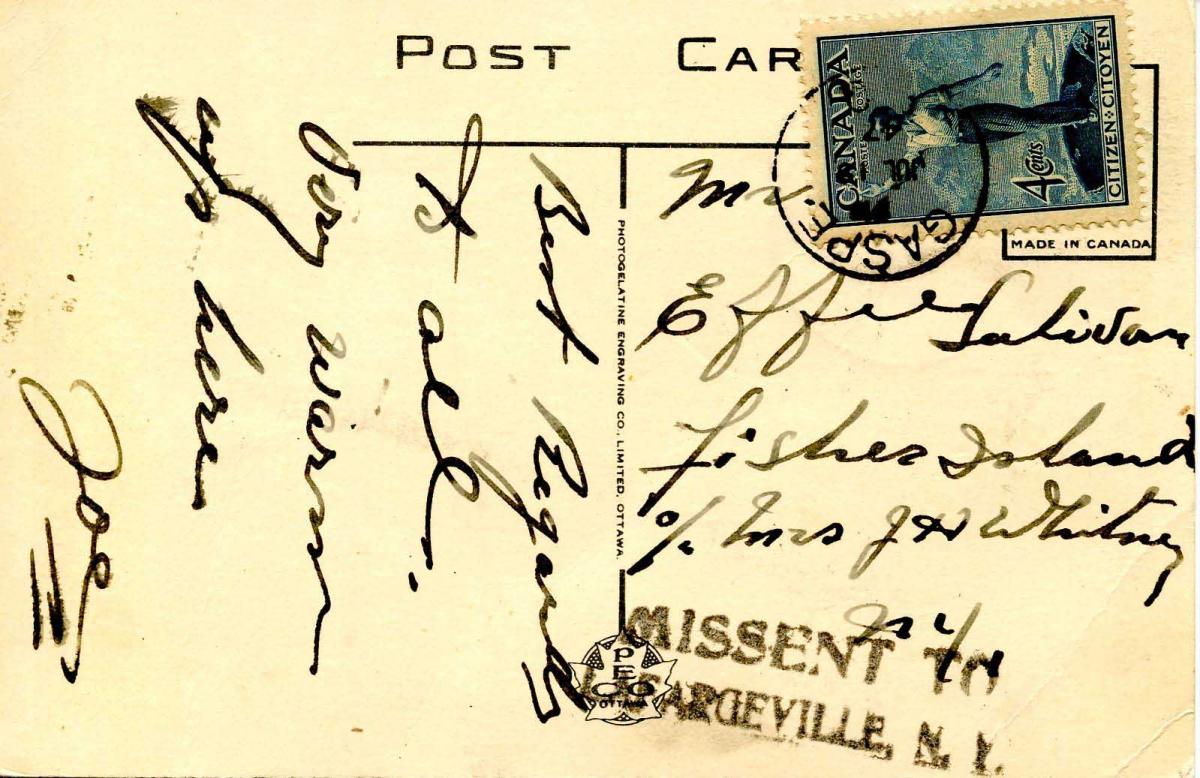 POST CAR
CANADA
POSTES POSTAGE
4 Cents
CITIZEN CITOYEN
GASPE
MADE IN CANADA
Best Regards
to all.
Very warm
up here
Joe
PHOTOGELATINE ENGRAVING CO., LIMITED, OTTAWA.
Mrs
Effie Salivan
Fisher Island
c/o Mrs J H Whitney
N Y
MISSENT TO
LAFARGEVILLE, N. Y.
PECO
OTTAWA